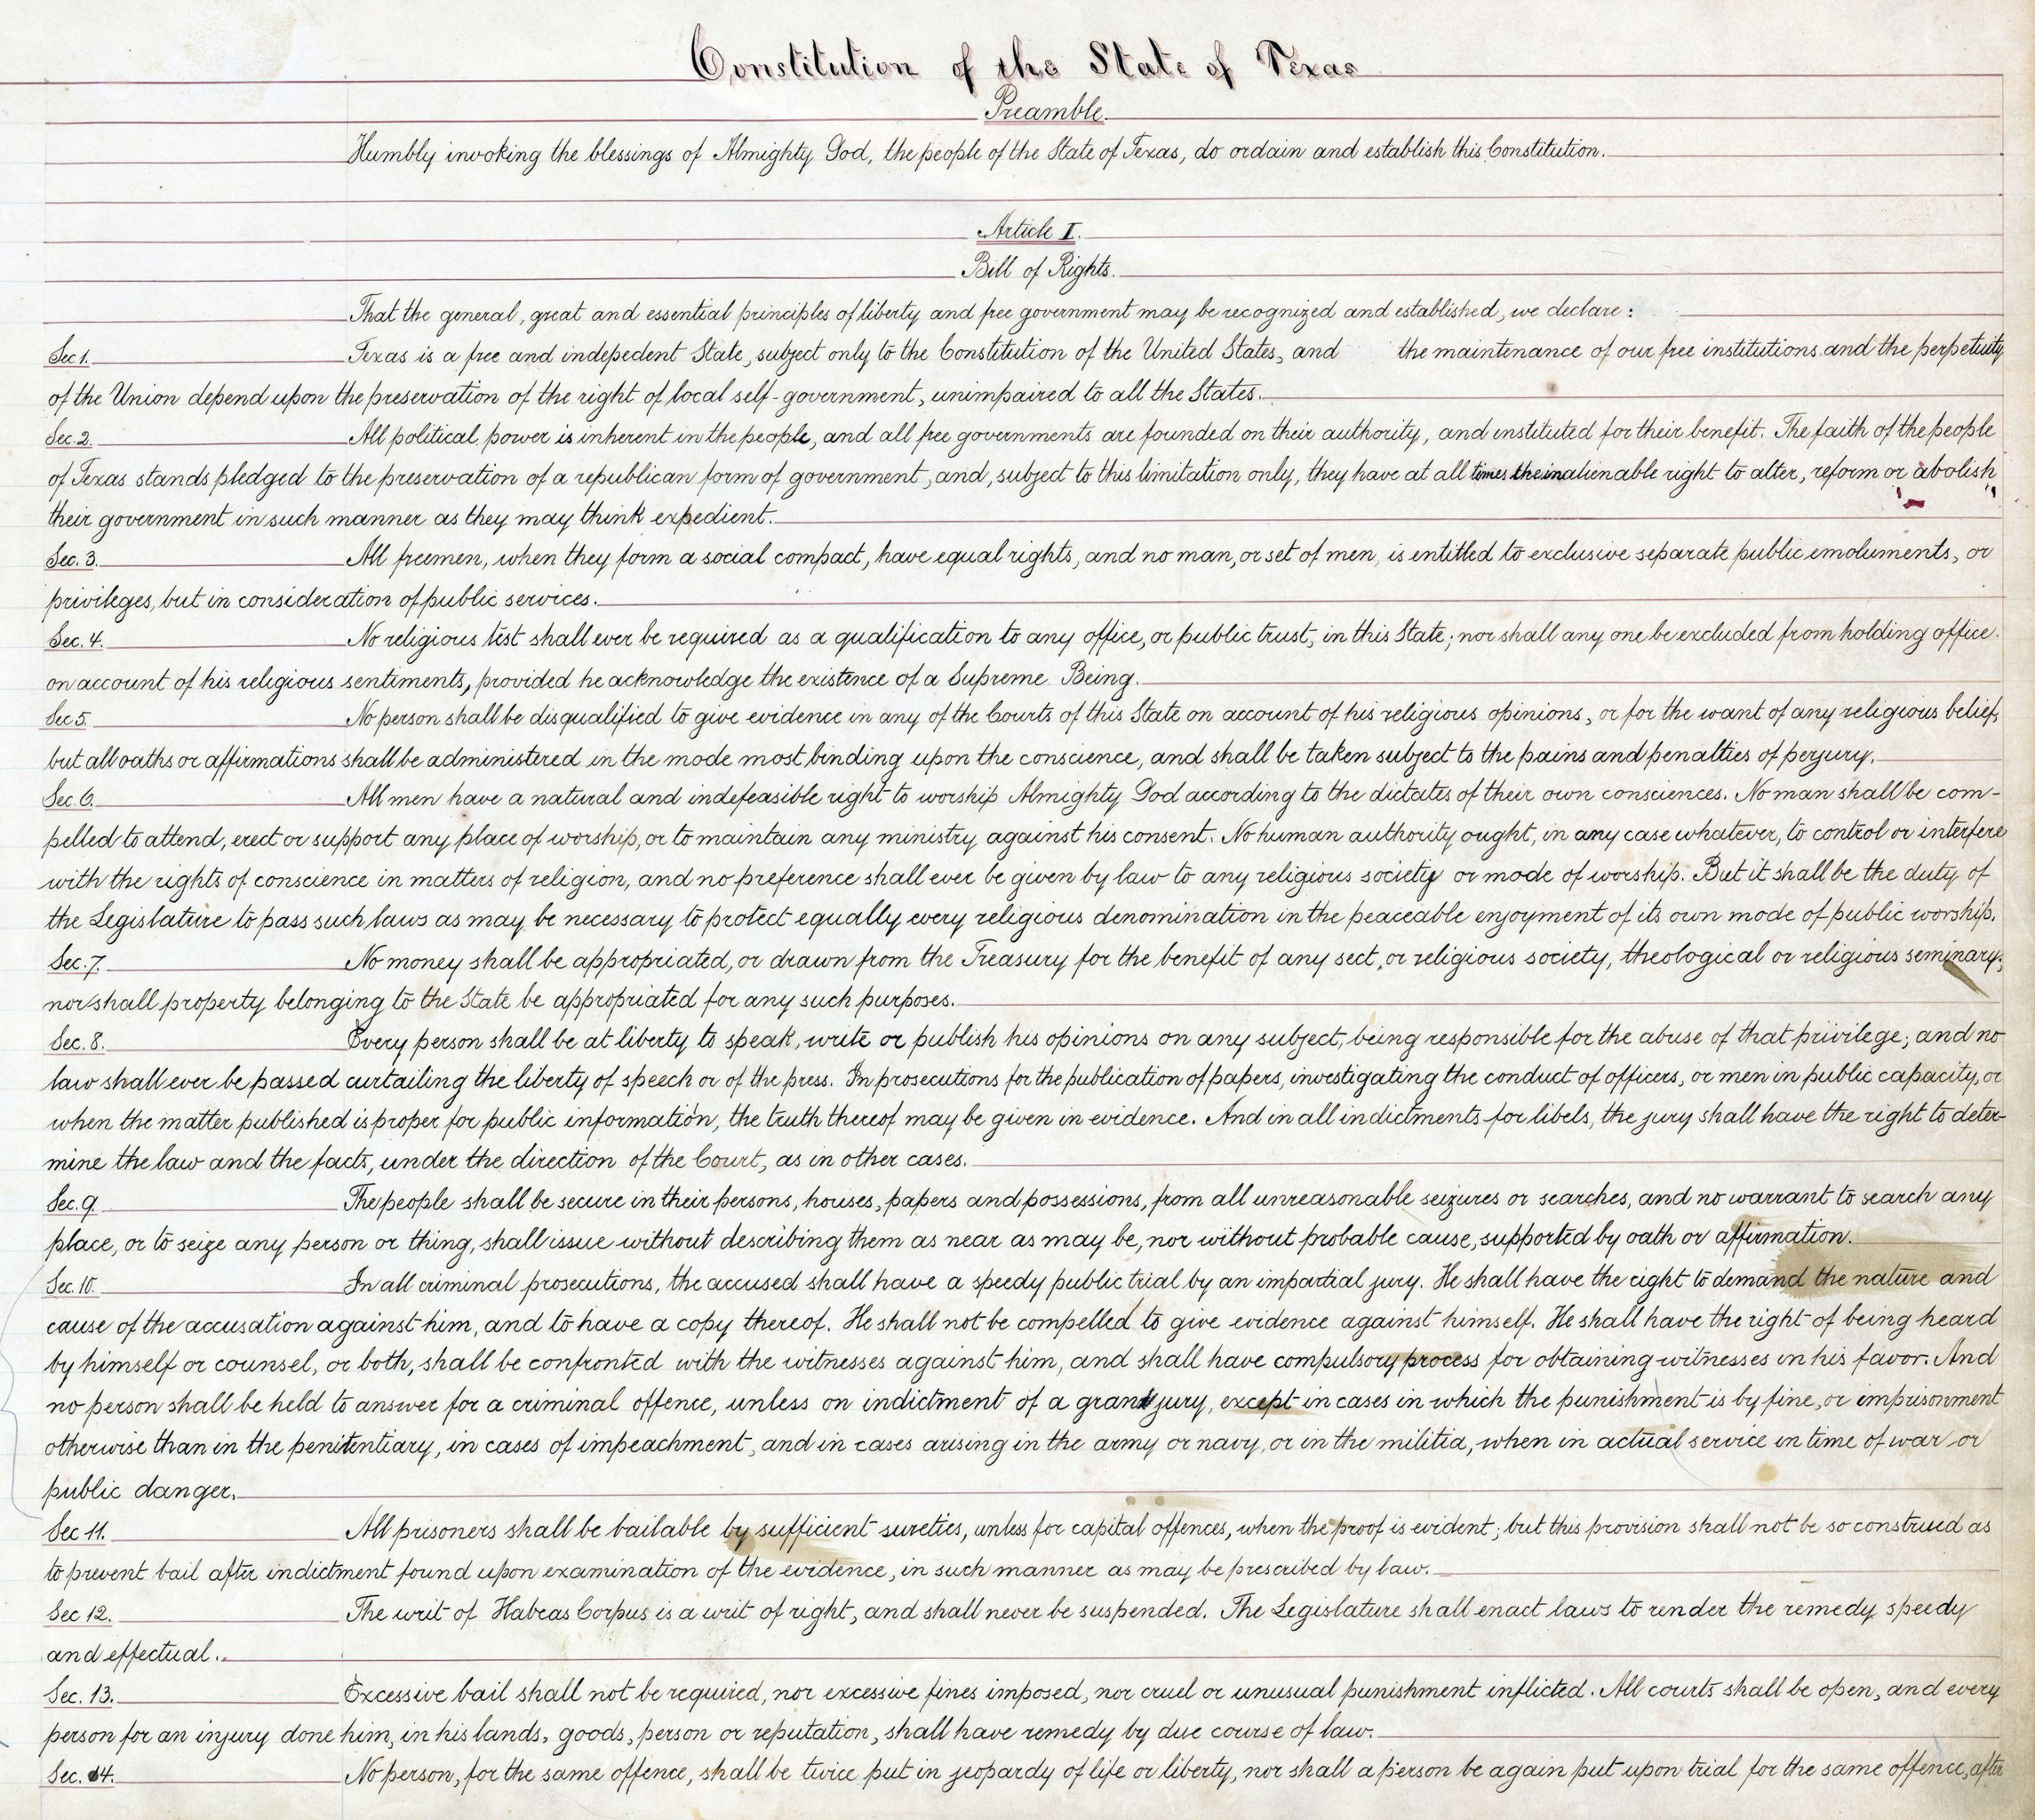 Constitution of the State of Texas
Preamble.
Humbly invoking the blessings of Almighty God, the people of the State of Texas, do ordain and establish this Constitution.
Article I.
Bill of Rights.
That the general, great and essential principles of liberty and free government may be recognized and established, we declare:
Sec 1. Texas is a free and indepedent State, subject only to the Constitution of the United States, and the maintenance of our free institutions and the perpetuity
of the Union depend upon the preservation of the right of local self-government, unimpaired to all the States.
Sec. 2. All political power is inherent in the people, and all free governments are founded on their authority, and instituted for their benefit. The faith of the people
of Texas stands pledged to the preservation of a republican form of government, and, subject to this limitation only, they have at all times the inalienable right to alter, reform or abolish
their government in such manner as they may think expedient.
Sec. 3. All freemen, when they form a social compact, have equal rights, and no man, or set of men, is entitled to exclusive separate public emoluments, or
privileges, but in consideration of public services.
Sec. 4. No religious test shall ever be required as a qualification to any office, or public trust, in this State; nor shall any one be excluded from holding office
on account of his religious sentiments, provided he acknowledge the existence of a Supreme Being.
Sec 5. No person shall be disqualified to give evidence in any of the Courts of this State on account of his religious opinions, or for the want of any religious belief,
but all oaths or affirmations shall be administered in the mode most binding upon the conscience, and shall be taken subject to the pains and penalties of perjury.
Sec. 6. All men have a natural and indefeasible right to worship Almighty God according to the dictates of their own consciences. No man shall be com-
pelled to attend, erect or support any place of worship, or to maintain any ministry against his consent. No human authority ought, in any case whatever, to control or interfere
with the rights of conscience in matters of religion, and no preference shall ever be given by law to any religious society or mode of worship. But it shall be the duty of
the Legislature to pass such laws as may be necessary to protect equally every religious denomination in the peaceable enjoyment of its own mode of public worship.
Sec. 7. No money shall be appropriated, or drawn from the Treasury for the benefit of any sect, or religious society, theological or religious seminary;
nor shall property belonging to the State be appropriated for any such purposes.
Sec. 8. Every person shall be at liberty to speak, write or publish his opinions on any subject, being responsible for the abuse of that privilege; and no
law shall ever be passed curtailing the liberty of speech or of the press. In prosecutions for the publication of papers, investigating the conduct of officers, or men in public capacity, or
when the matter published is proper for public information, the truth thereof may be given in evidence. And in all indictments for libels, the jury shall have the right to deter-
mine the law and the facts, under the direction of the Court, as in other cases.
Sec. 9. The people shall be secure in their persons, houses, papers and possessions, from all unreasonable seizures or searches, and no warrant to search any
place, or to seize any person or thing, shall issue without describing them as near as may be, nor without probable cause, supported by oath or affirmation.
Sec. 10. In all criminal prosecutions, the accused shall have a speedy public trial by an impartial jury. He shall have the right to demand the nature and
cause of the accusation against him, and to have a copy thereof. He shall not be compelled to give evidence against himself. He shall have the right of being heard
by himself or counsel, or both, shall be confronted with the witnesses against him, and shall have compulsory process for obtaining witnesses in his favor. And
no person shall be held to answer for a criminal offence, unless on indictment of a grand jury, except in cases in which the punishment is by fine, or imprisonment
otherwise than in the penitentiary, in cases of impeachment, and in cases arising in the army or navy, or in the militia, when in actual service in time of war or
public danger.
Sec 11. All prisoners shall be bailable by sufficient sureties, unless for capital offences, when the proof is evident; but this provision shall not be so construed as
to prevent bail after indictment found upon examination of the evidence, in such manner as may be prescribed by law.
Sec 12. The writ of Habeas Corpus is a writ of right, and shall never be suspended. The Legislature shall enact laws to render the remedy speedy
and effectual.
Sec. 13. Excessive bail shall not be required, nor excessive fines imposed, nor cruel or unusual punishment inflicted. All courts shall be open, and every
person for an injury done him, in his lands, goods, person or reputation, shall have remedy by due course of law.
Sec. 14. No person, for the same offence, shall be twice put in jeopardy of life or liberty, nor shall a person be again put upon trial for the same offence, after